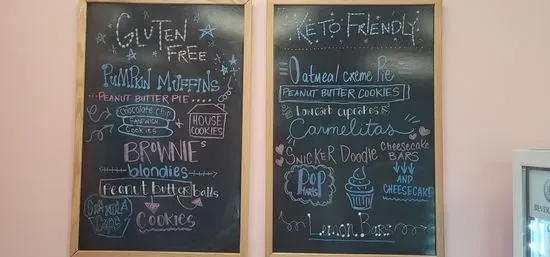 GLUTEN
FREE
PUMPKIN MUFFINS
PEANUT BUTTER PIE
Chocolate chip
SANDWICH
Cookies
+
HOUSE
COOKIES
BROWNIES
blondies
Peanut butter balls
Cookies
KETO FRIENDLY
Oatmeal creme Pie
PEANUT BUTTER COOKIES
Lowcarb cupcakes
Carmelitas
SNICKER DOODLE
CHEESECAKE
BARS
AND
CHEESECAKE
POP
TARTS
Lemon Bars